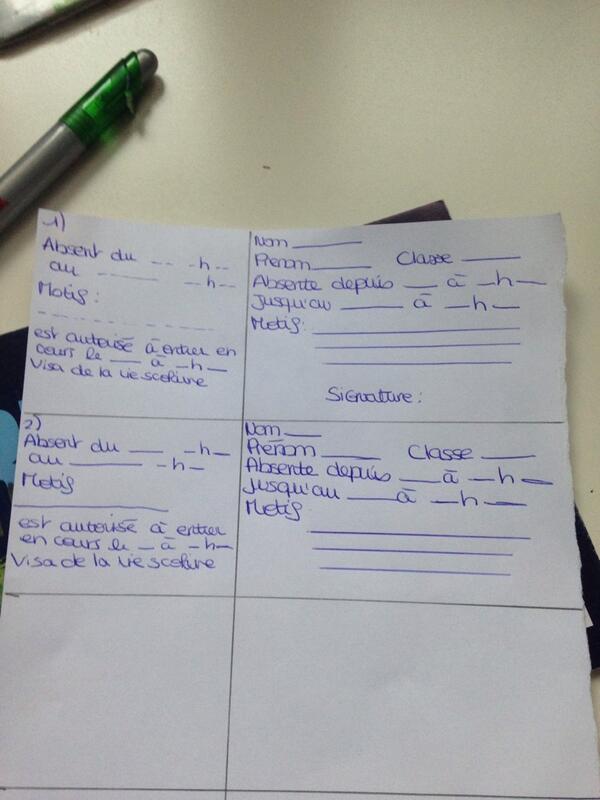 1)
Absent du __ _ _h__
au ____ __h__
Motif :
_ _ _ _ _ _ _ _ _
est autorisé à entrer en
cours le __ à _h_
Visa de la vie scolaire
Nom ______
Prénom ______ Classe ______
Absente depuis ___ à __h__
jusqu'au ______ à __h__
Motif: ______________
______________
______________
Signature :
2)
Absent du ___ _h_
au ______ _h_
Motif
______________
est autorisé à entrer
en cours le _ à _h_
Visa de la vie scolaire
Nom ____
Prénom ______ Classe _____
Absente depuis ____ à __h__
jusqu'au _____ à __h__
Motif
______________
______________
______________